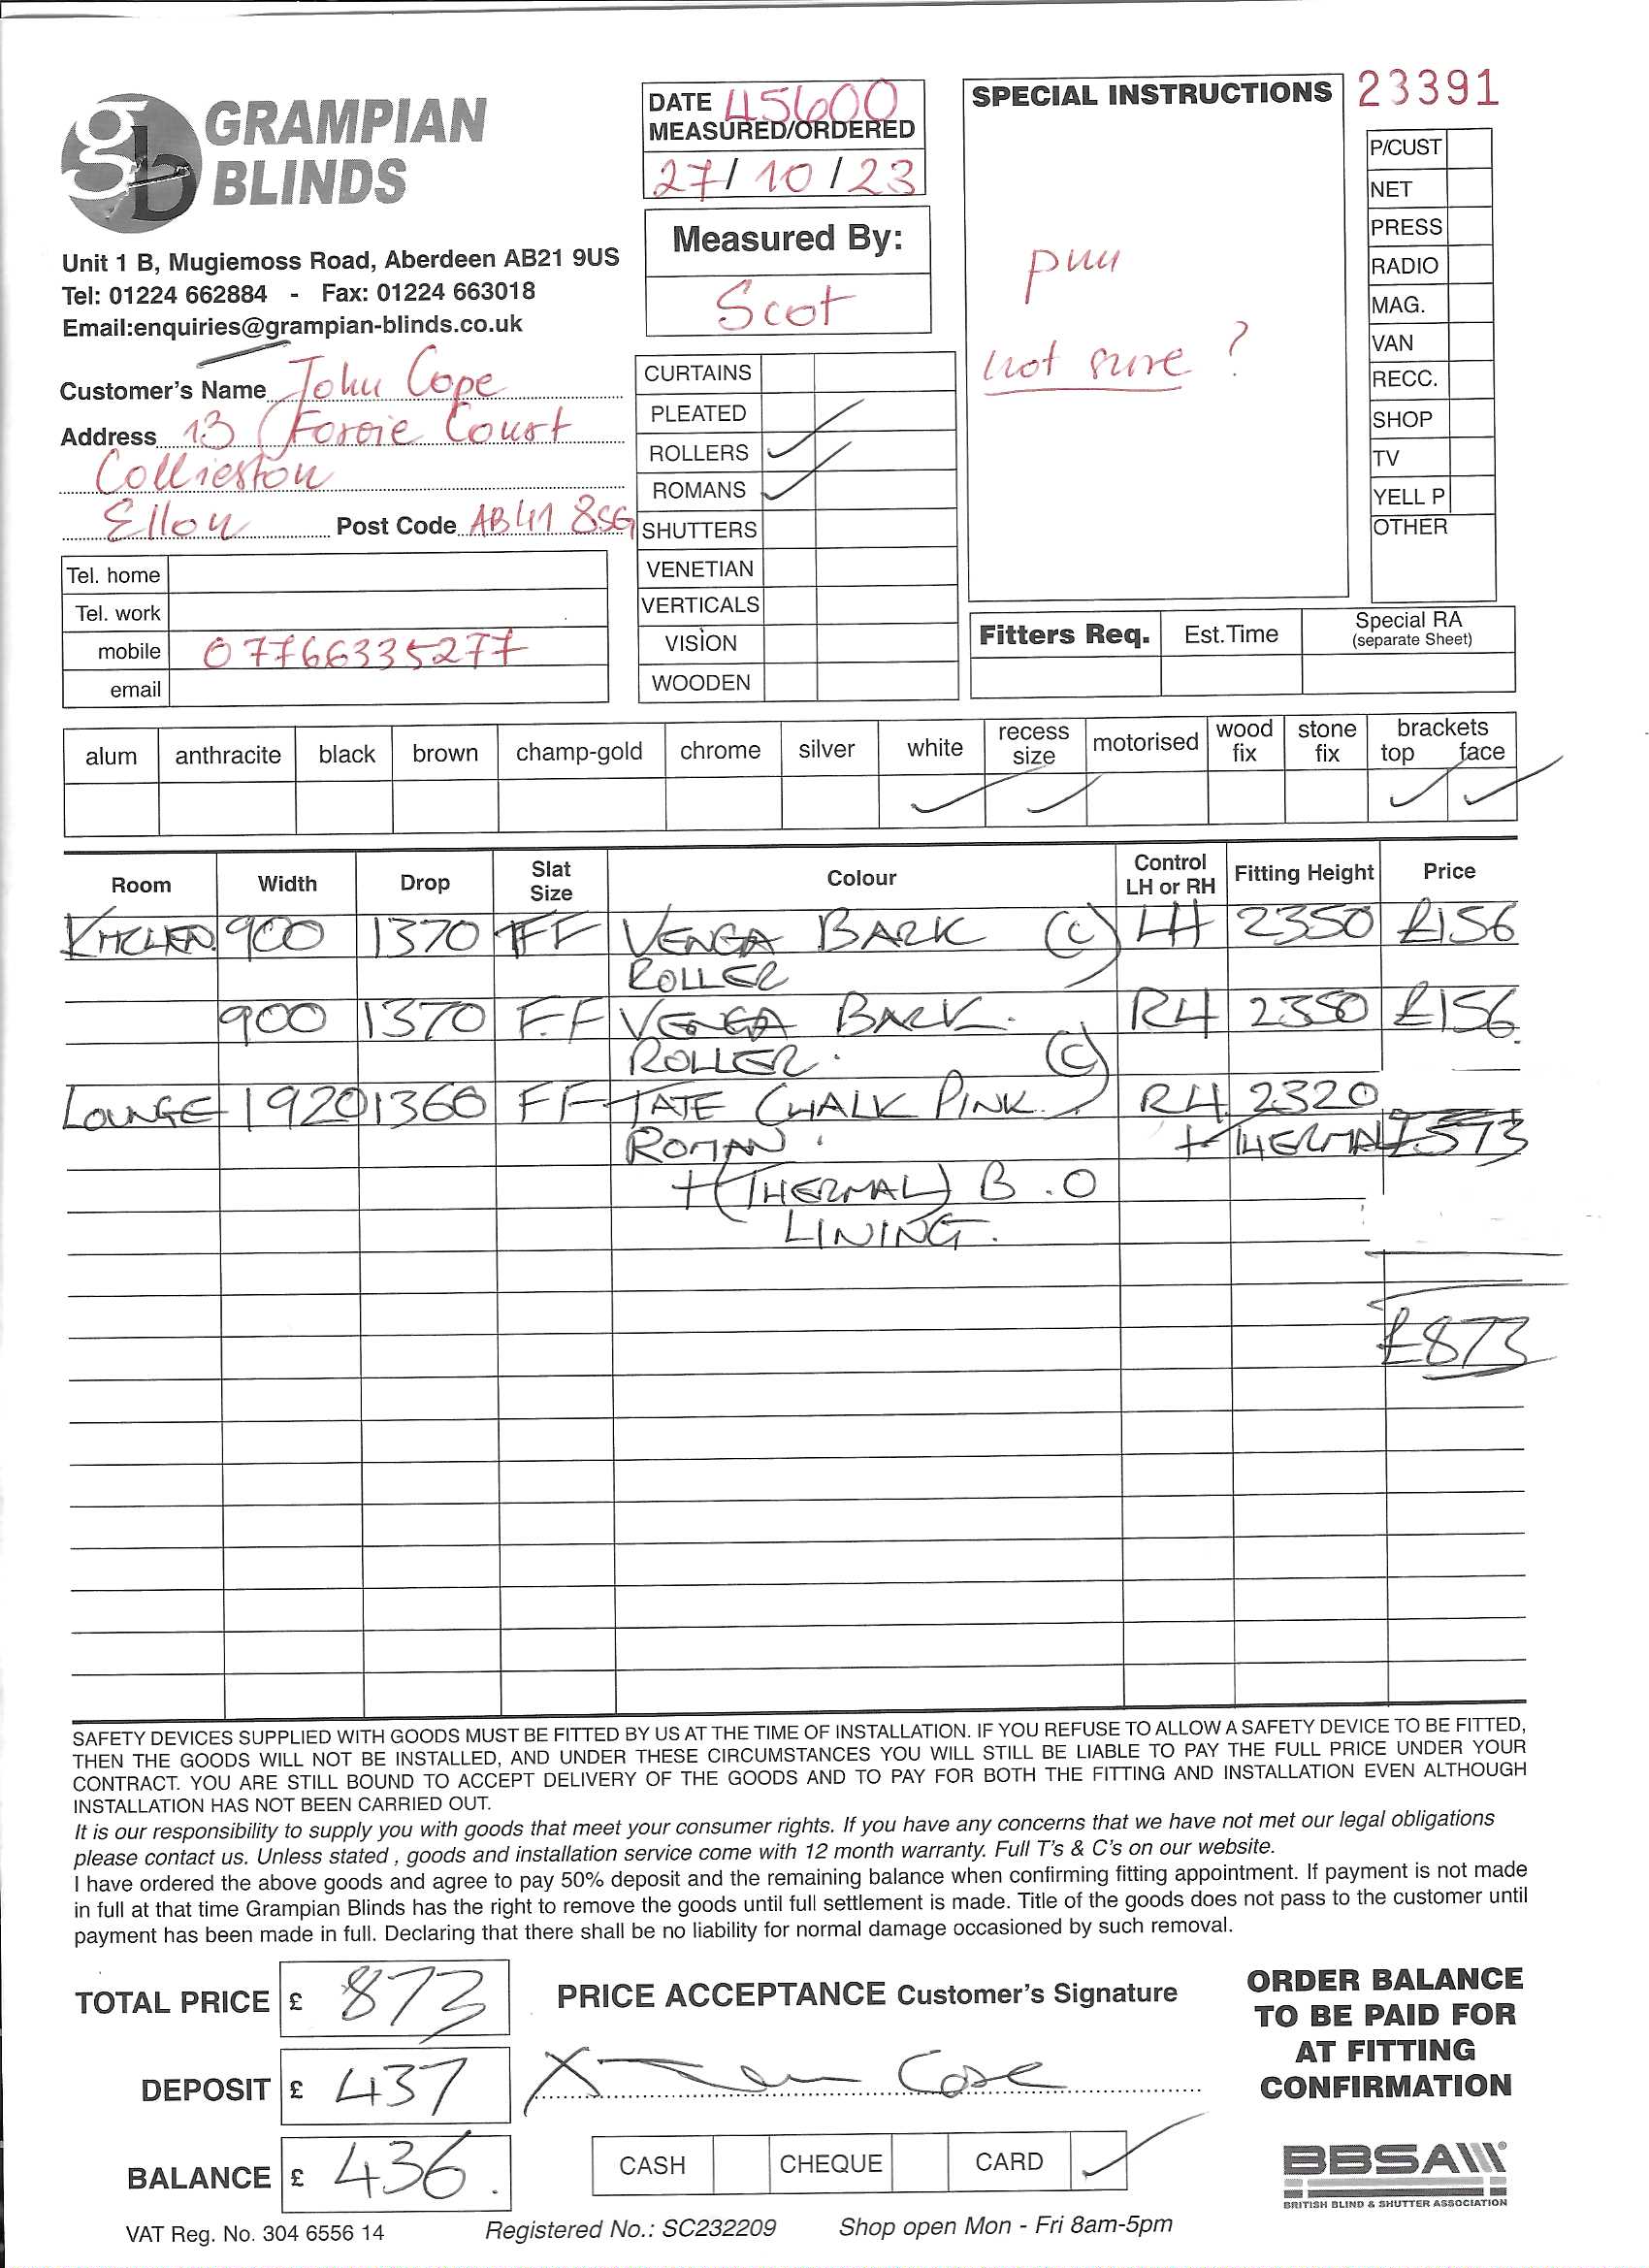 GRAMPIAN
BLINDS
Unit 1 B, Mugiemoss Road, Aberdeen AB21 9US
Tel: 01224 662884 - Fax: 01224 663018
Email:enquiries@grampian-blinds.co.uk
Customer's Name John Cope
Address 13 Forvie Court
Collieston
Ellon Post Code AB41 8SG
Tel. home
Tel. work
mobile 07766335277
email
DATE 45600
MEASURED/ORDERED
27/10/23
Measured By:
Scot
CURTAINS
PLEATED
ROLLERS ✓
ROMANS ✓
SHUTTERS
VENETIAN
VERTICALS
VISION
WOODEN
SPECIAL INSTRUCTIONS
not sure ?
23391
P/CUST
NET
PRESS
RADIO
MAG.
VAN
RECC.
SHOP
TV
YELL P
OTHER
Fitters Req. Est.Time Special RA (separate Sheet)
alum anthracite black brown champ-gold chrome silver white recess size motorised wood fix stone fix brackets top face
✓ ✓ ✓ ✓
Room Width Drop Slat Size Colour Control LH or RH Fitting Height Price
KITCHEN 900 1370 FF VENGA BARK (C) LH 2350 £156
ROLLER
900 1370 F.F VENGA BARK. R4 2350 £156
ROLLER. (C)
LOUNGE 1920 1360 FF TATE CHALK PINK. RH 2320
ROMAN. + THERMAL £573
+ (THERMAL) B.O
LINING.
£873
SAFETY DEVICES SUPPLIED WITH GOODS MUST BE FITTED BY US AT THE TIME OF INSTALLATION. IF YOU REFUSE TO ALLOW A SAFETY DEVICE TO BE FITTED,
THEN THE GOODS WILL NOT BE INSTALLED, AND UNDER THESE CIRCUMSTANCES YOU WILL STILL BE LIABLE TO PAY THE FULL PRICE UNDER YOUR
CONTRACT. YOU ARE STILL BOUND TO ACCEPT DELIVERY OF THE GOODS AND TO PAY FOR BOTH THE FITTING AND INSTALLATION EVEN ALTHOUGH
INSTALLATION HAS NOT BEEN CARRIED OUT.
It is our responsibility to supply you with goods that meet your consumer rights. If you have any concerns that we have not met our legal obligations
please contact us. Unless stated , goods and installation service come with 12 month warranty. Full T's & C's on our website.
I have ordered the above goods and agree to pay 50% deposit and the remaining balance when confirming fitting appointment. If payment is not made
in full at that time Grampian Blinds has the right to remove the goods until full settlement is made. Title of the goods does not pass to the customer until
payment has been made in full. Declaring that there shall be no liability for normal damage occasioned by such removal.
TOTAL PRICE £ 873
DEPOSIT £ 437
BALANCE £ 436.
PRICE ACCEPTANCE Customer's Signature
X John Cope
CASH CHEQUE CARD ✓
ORDER BALANCE
TO BE PAID FOR
AT FITTING
CONFIRMATION
BBSA
BRITISH BLIND & SHUTTER ASSOCIATION
VAT Reg. No. 304 6556 14 Registered No.: SC232209 Shop open Mon - Fri 8am-5pm